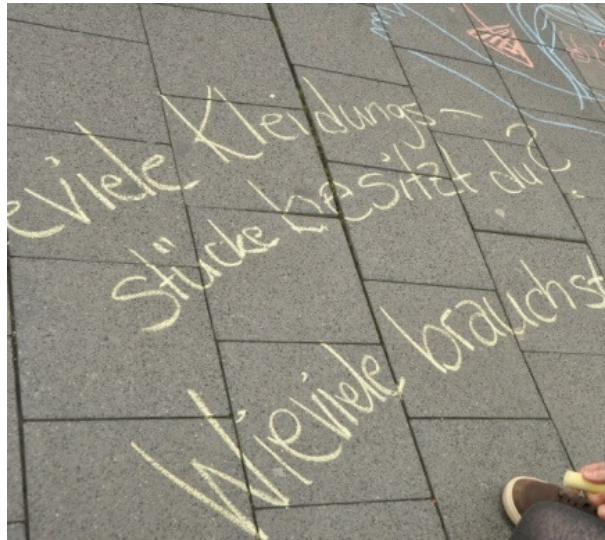 eviele Kleidungs-
stücke besitzt du?
Wieviele brauchst